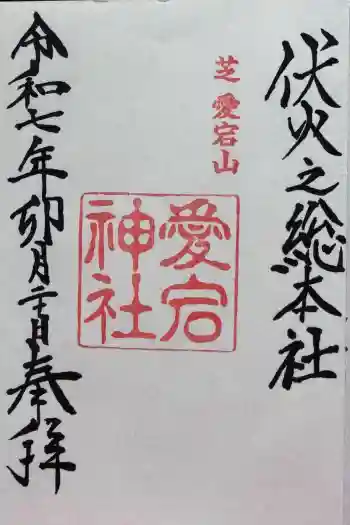 伏火之総本社
芝 愛宕山
愛宕
神社
令和七年卯月二日奉拝